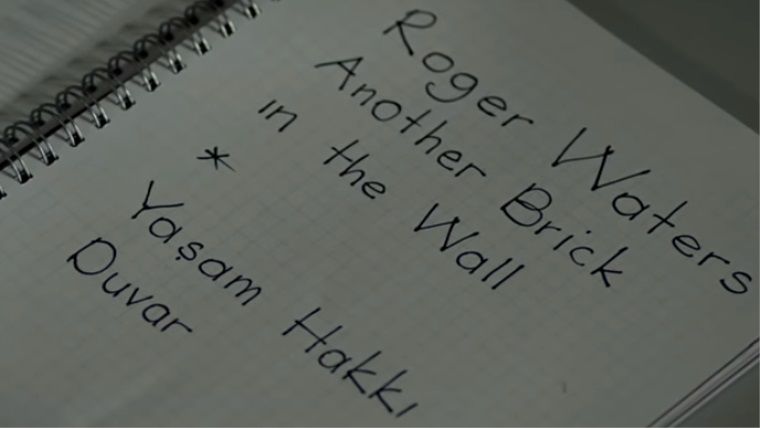 Roger Waters
Another Brick
in the Wall
*
Yaşam Hakkı
Duvar